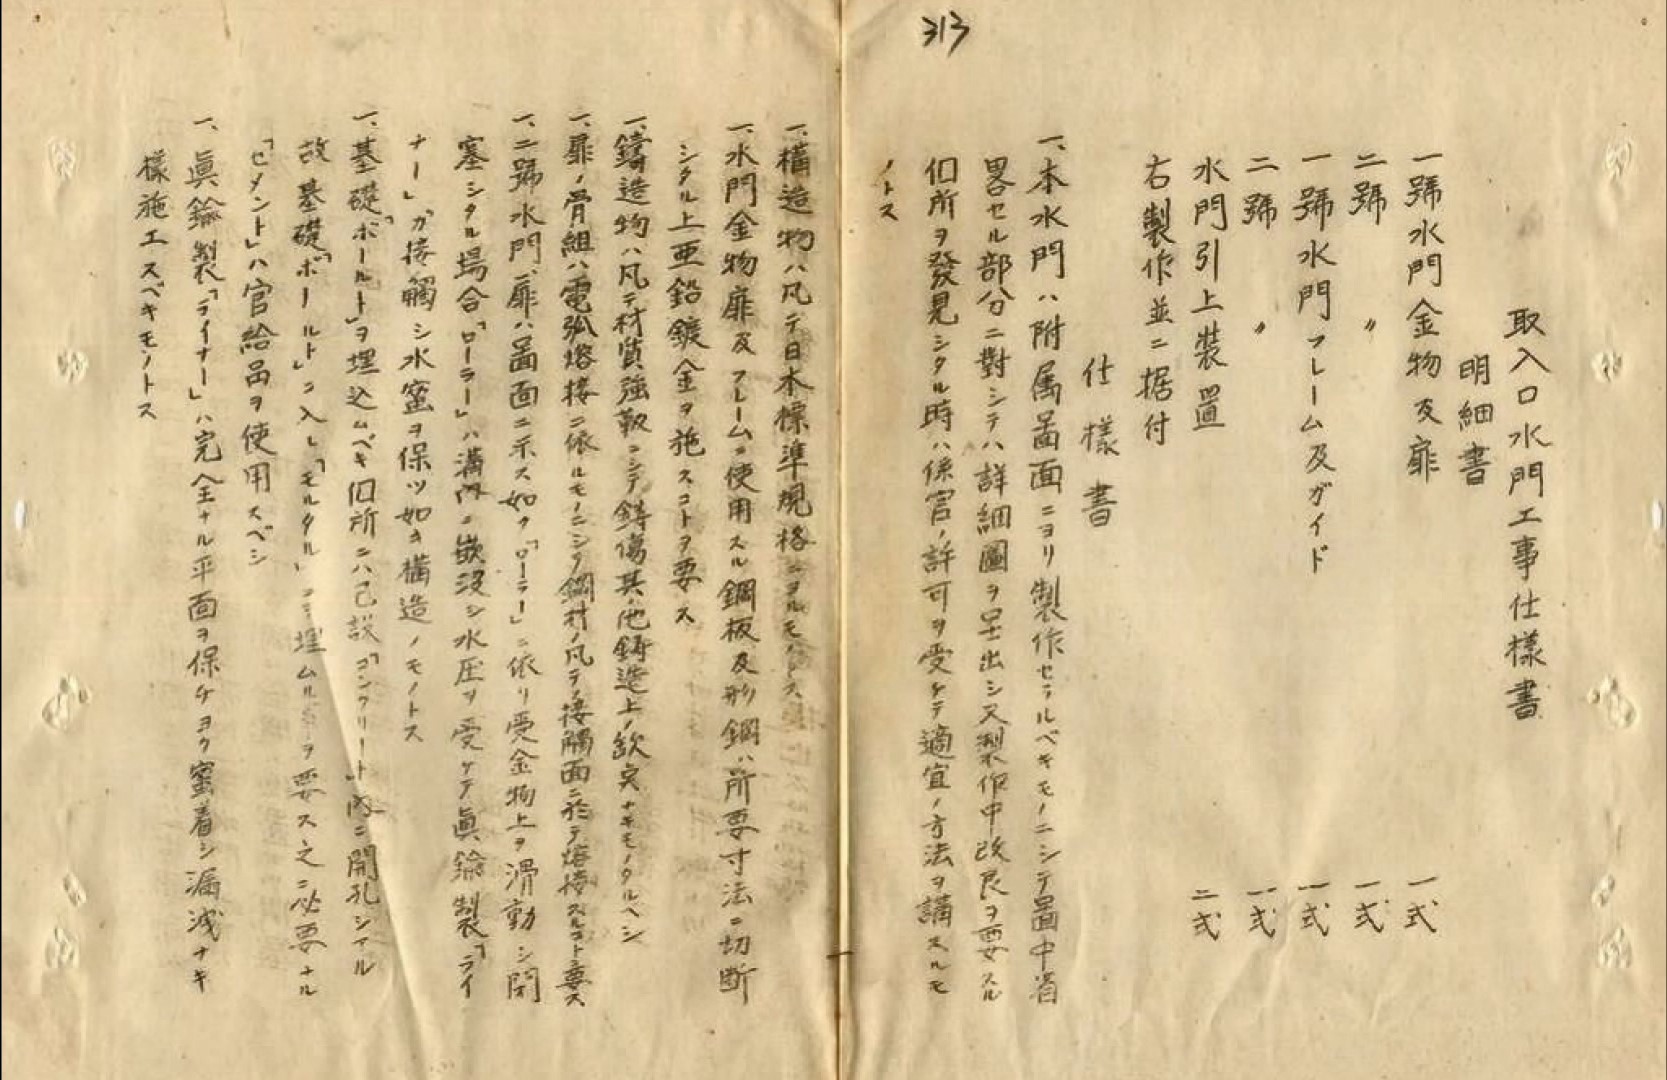 313
取入口水門工事仕様書
明細書
一號水門金物及扉 一式
二號 〃 一式
一號水門フレーム及ガイド 一式
二號 〃 一式
水門引上装置 二式
右製作並ニ据付
仕様書
一、本水門ハ附属啚面ニヨリ製作セラルベキモノニシテ啚中省
畧セル部分ニ對シテハ詳細圖ヲ呈出シ又製作中改良ヲ要スル
個所ヲ發見シタル時ハ係官ノ許可ヲ受ケテ適宜ノ方法ヲ講スルモ
ノトス
一、構造物ハ凡テ日本標準規格ニヨルモノトス
一、水門金物扉及フレームニ使用スル鋼板及形鋼ハ所要寸法ニ切断
シタル上亜鉛鍍金ヲ施スコトヲ要ス
一、鑄造物ハ凡テ材質強靱ニシテ鋳傷其ノ他鋳造上ノ欽欠ナキモノタルベシ
一、扉ノ骨組ハ電弧熔接ニ依ルモノニシテ鋼材ノ凡テノ接觸面ニ於テ熔接スルコトヲ要ス
一、二號水門ノ扉ハ啚面ニ示ス如ク「ローラー」ニ依リ受金物上ヲ滑動シ閉
塞シタル場合「ローラー」ハ溝内ニ嵌没シ水圧ヲ受ケテ眞鍮製「ライ
ナー」ガ接觸シ水蜜ヲ保ツ如キ構造ノモノトス
一、基礎「ボールト」ヲ埋込ムベキ個所ニハ已設「コンクリート」内ニ開孔シアル
故基礎「ボールト」ニ入レ「モルタル」ニテ埋ムル事ヲ要ス之ニ必要ナル
「セメント」ハ官給品ヲ使用スベシ
一、眞鍮製「ライナー」ハ完全ナル平面ヲ保チヨク蜜着シ漏洩ナキ
様施工スベキモノトス